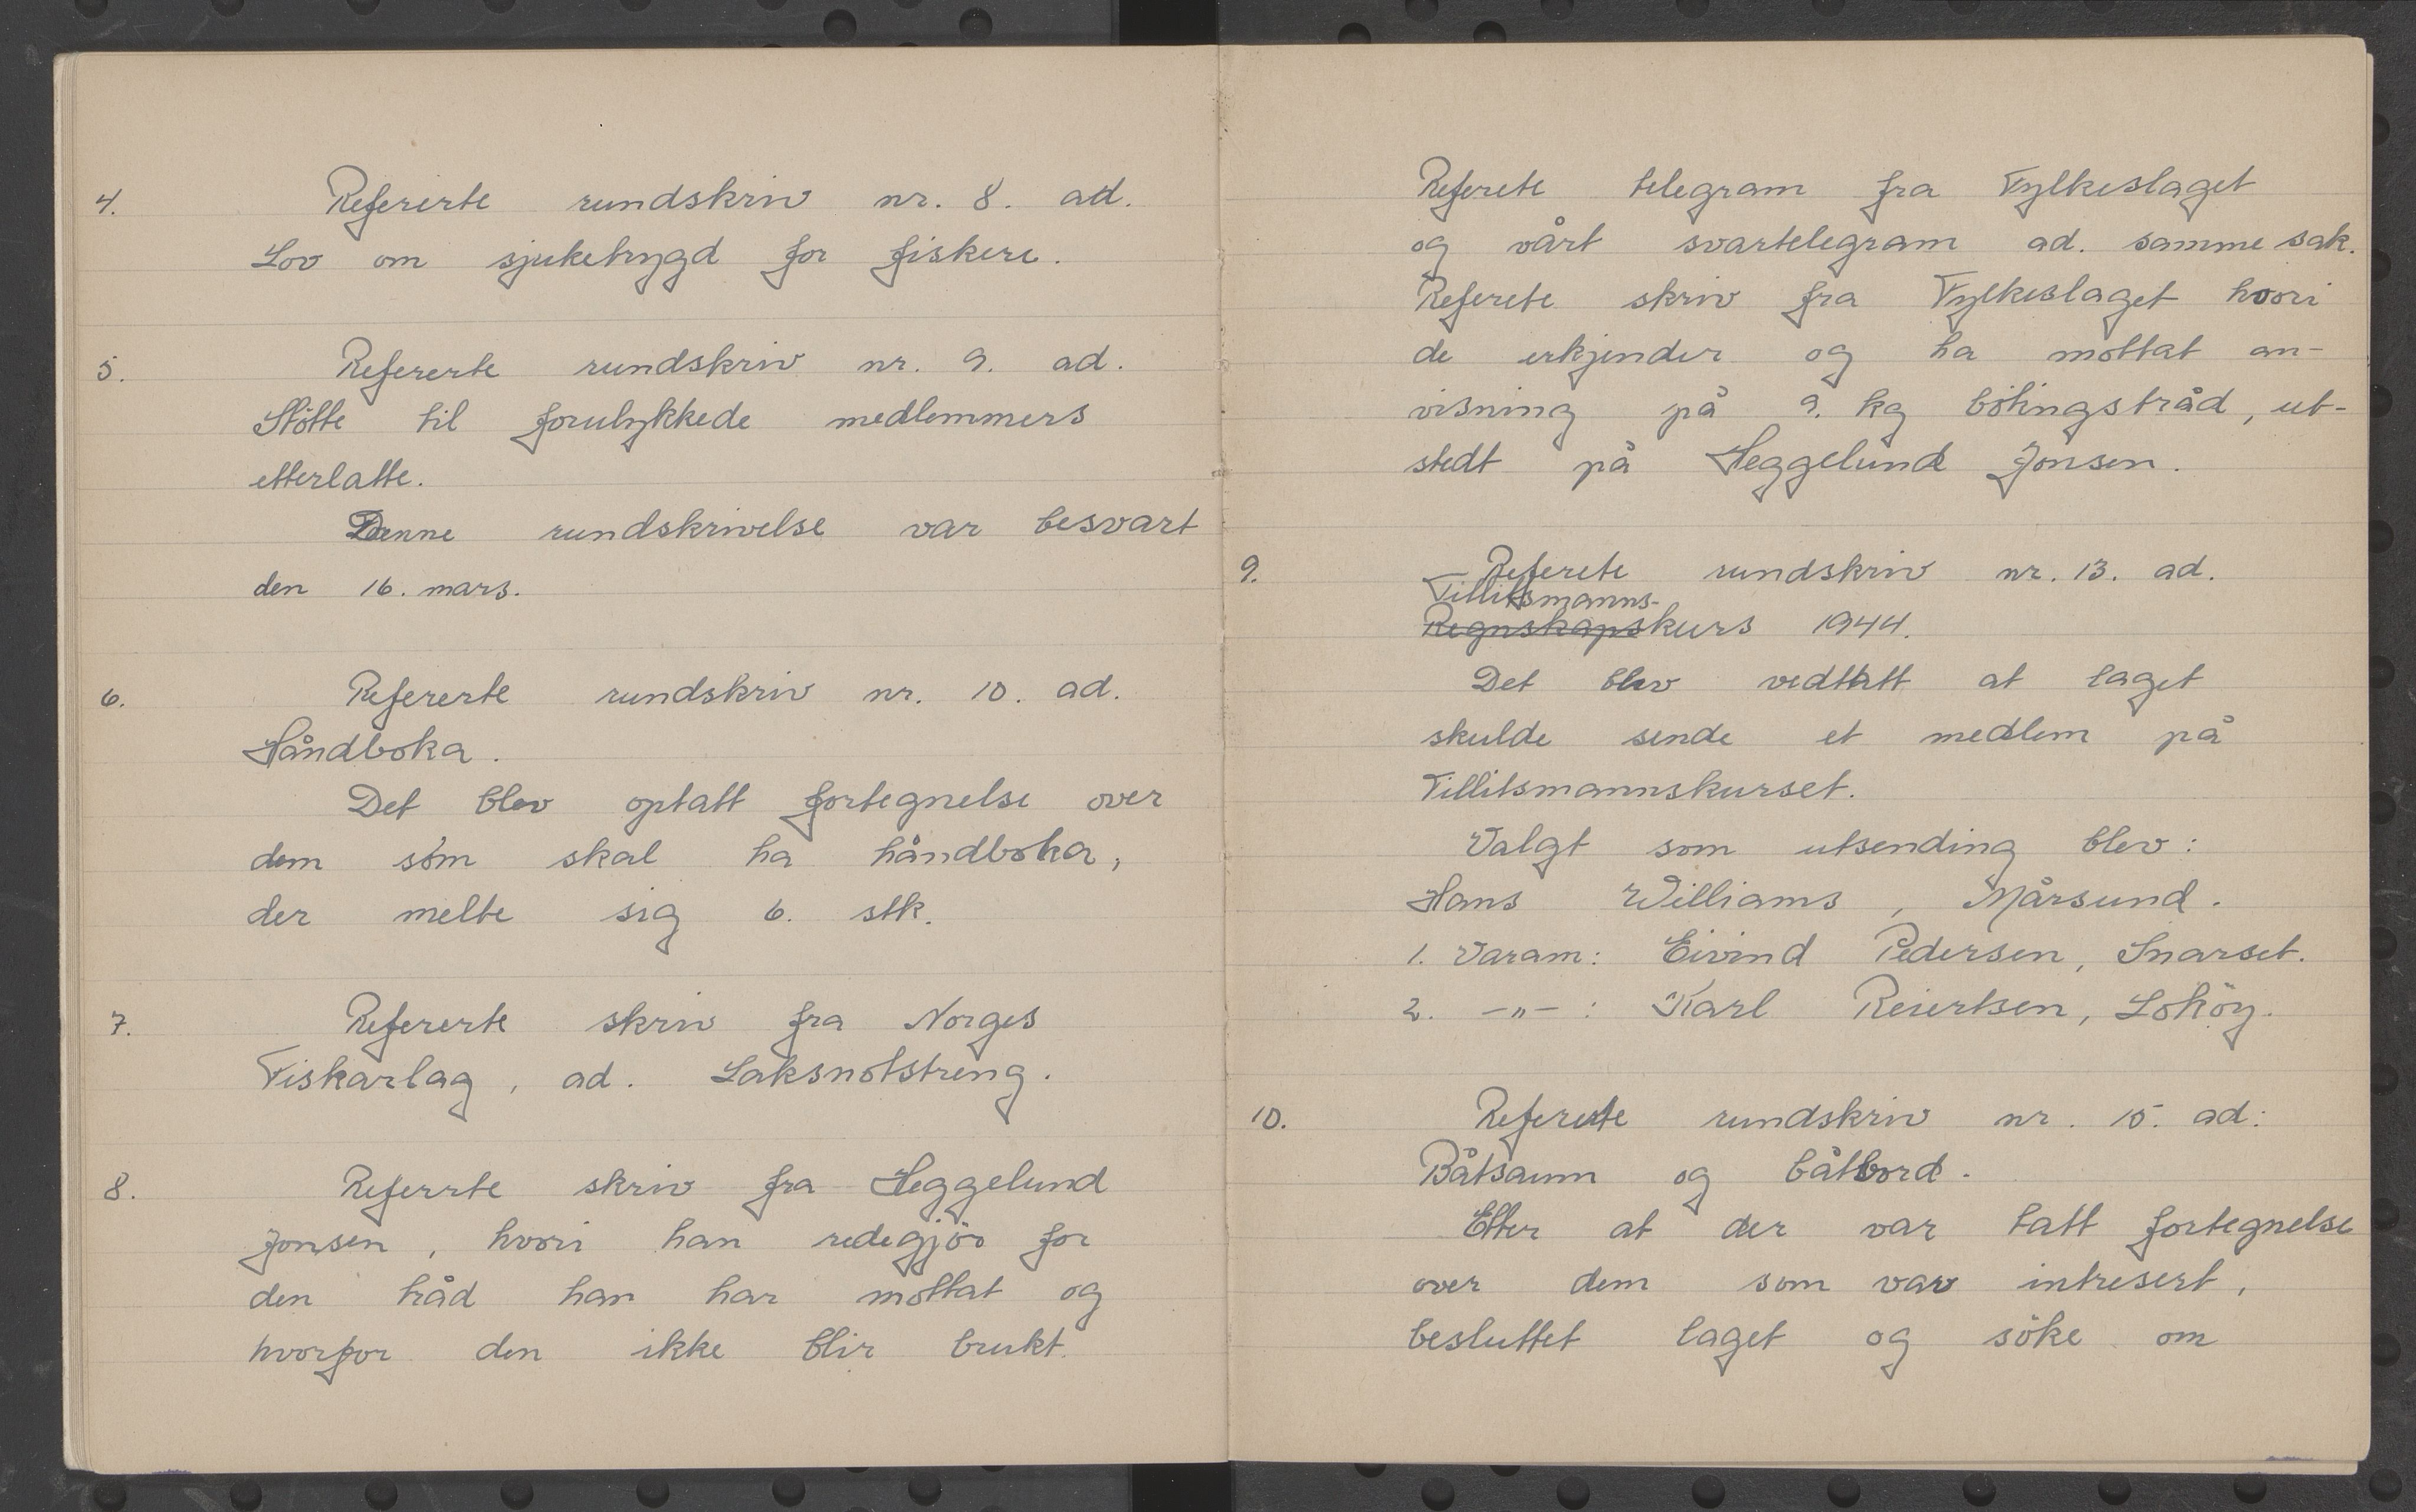 4. Refererte rundskriv nr. 8. ad.
Lov om sjuketrygd for fiskere.
5. Refererte rundskriv nr. 9. ad.
Stötte til forulykkede medlemmers
etterlatte.
Denne rundskrivelse var besvart
den 16. mars.
6. Refererte rundskriv nr. 10. ad.
Håndboka.
Det blev optatt fortegnelse over
dem som skal ha håndboka,
der melte sig 6. stk.
7. Refererte skriv fra Norges
Fiskarlag, ad. Laksnotstreng.
8. Referrte skriv fra Heggelund
Jonsen, hvori han redegjör for
den tråd han har mottat og
hvorfor den ikke blir brukt.
Referete telegram fra Fylkeslaget
og vårt svartelegram ad. samme sak.
Referete skriv fra Fylkeslaget hvori
de erkjender og ha mottat an-
visning på 9. kg bötingstråd, ut-
stedt på Heggelund Jonsen.
9. Referete rundskriv nr. 13. ad.
Tillitsmanns-
Regnskapskurs 1944.
Det blev vedtatt at laget
skulde sende et medlem på
Tillitsmannskurset.
Valgt som utsending blev:
Hans Williams, Mårsund.
1. Varam: Eivind Pedersen, Snarset.
2. -"- : Karl Reiertsen, Loköy.
10. Referete rundskriv nr. 15. ad:
Båtsaum og båtbord.
Etter at der var tatt fortegnelse
over dem som var intresert,
besluttet laget og söke om